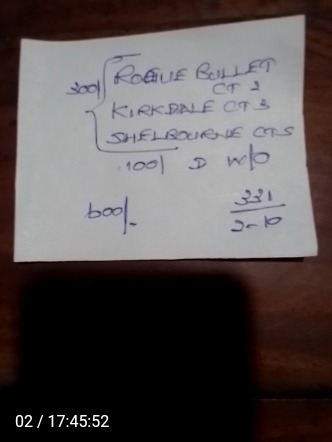 300/ ROGUE BULLET
CT 2
KIRKDALE CT 3
SHELBOURNE CT 5
100/ D W/O
600/-
331
2-10
02 / 17:45:52